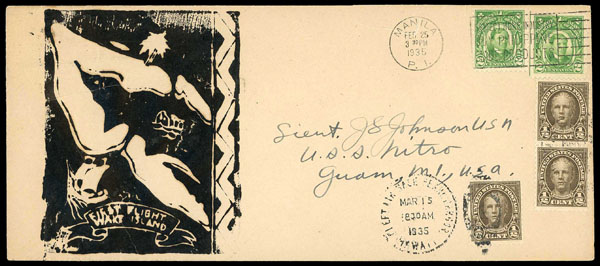 MANILA
FEB 25
3 PM
1935
P. I.
Lieut. J E Johnson USN
U.S.S. Nitro
Guam, M.I., U.S.A.
MAR 15
8:30AM
1935
HAWAII
FIRST FLIGHT
WAKE ISLAND
UNITED STATES POSTAGE
½ CENT ½
UNITED STATES POSTAGE
½ CENT ½
UNITED STATES POSTAGE
½ CENT ½